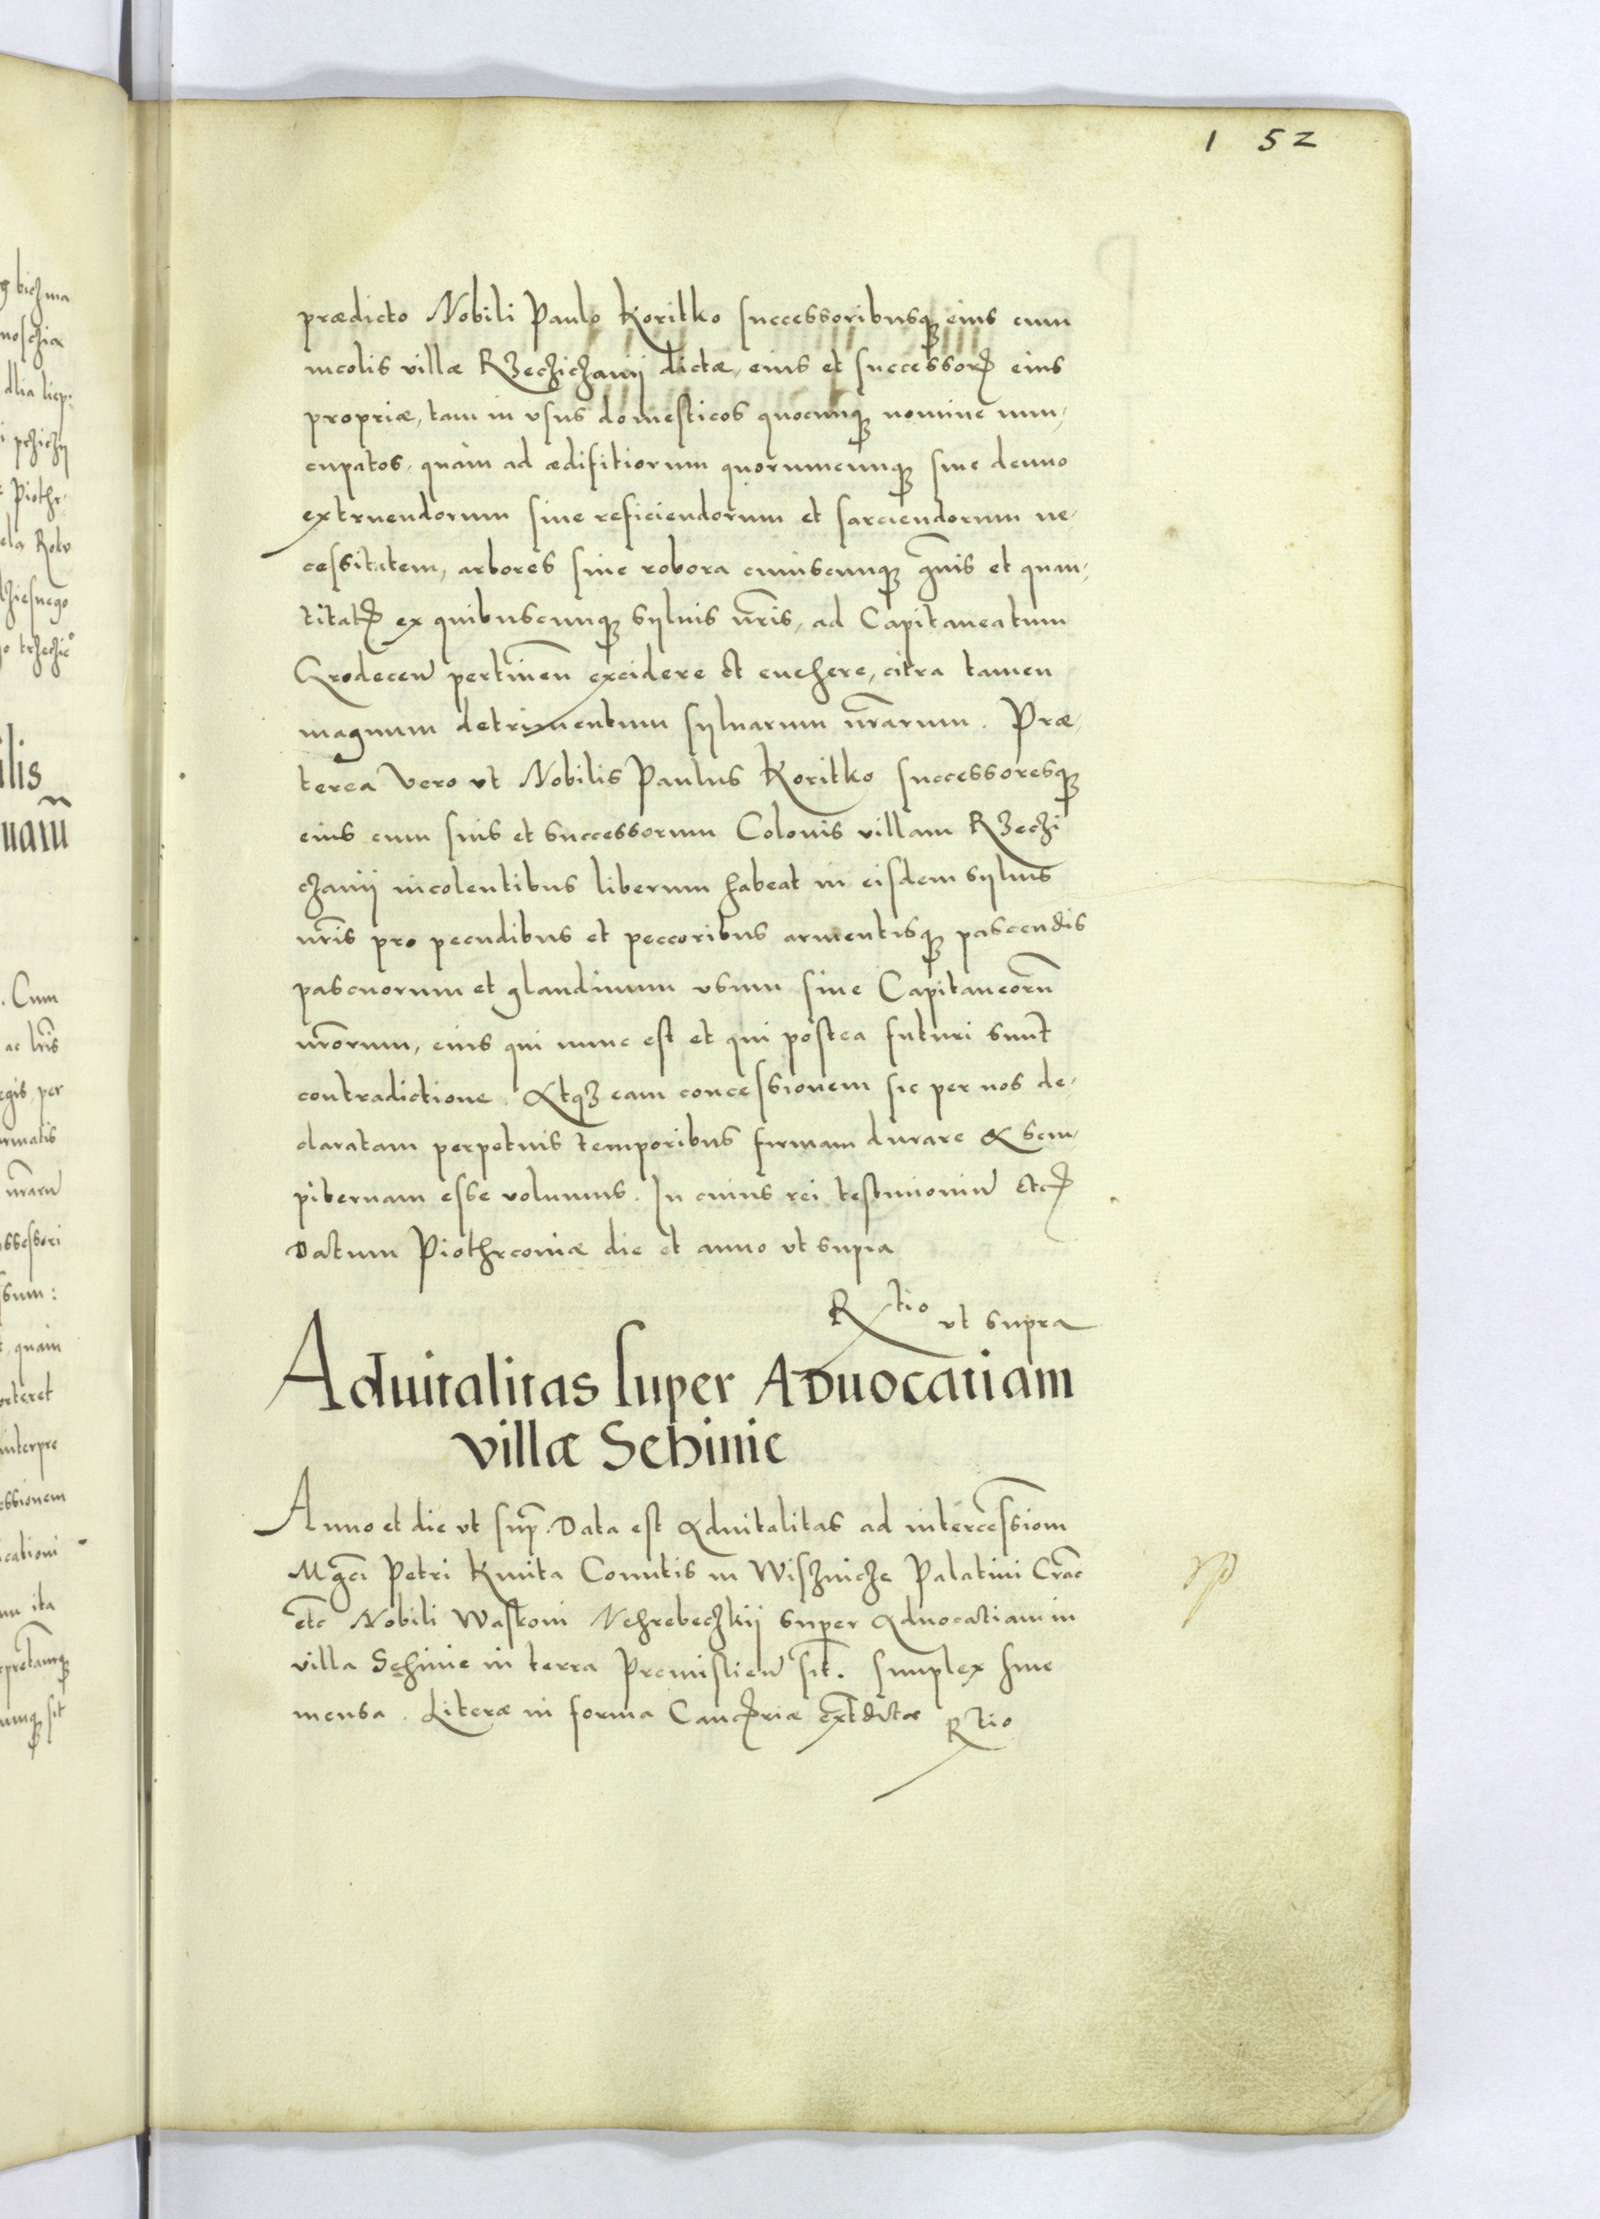 1 52
prædicto Nobili Paulo Koritko successoribusq eius cum
incolis villæ Rzeczichanij dictæ, eius et successor eius
propriæ, tam in vsus domesticos quocunq nomine nun,
cupatos, quàm ad ædifitiorum quorumcunq siue denuo
extruendorum siue reficiendorum et sarciendorum ne,
cessitatem, arbores siue robora cuiuscunq gnis et quan,
titat ex quibuscunq syluis nris, ad Capitaneatum
Grodecen pertinen excidere et euehere, citra tamen
magnum detrimentum syluarum nrarum. Præ,
terea vero vt Nobilis Paulus Koritko successoresq
eius cum suis et successorum Colonis villam Rzeczi
chanij incolentibus liberum habeat in eisdem syluis
nris pro pecudibus et peccoribus armentisq pascendis
pascuorum et glandinum vsum sine Capitaneorum
nrorum, eius qui nunc est et qui postea futuri sunt
contradictione. Atq eam concessionem sic per nos de,
claratam perpetuis temporibus firmam durare & sem,
piternam esse volumus. In cuius rei testimoniu Etc
Datum Piothrconiæ die et anno vt supra
Rtio vt supra
Aduitalitas super Aduocatiam
villæ Sehinie
Anno et die vt sup. Data est Aduitalitas ad intercessionem
Mgci Petri Kmita Comitis in Wisznicze Palatini Crac
etc Nobili Waskoni Nehrebeczkij super Aduocatiam in
villa Sehinie in terra Premislien sit. simplex siue
mensa. Literæ in forma Cancriæ extditæ Rtio